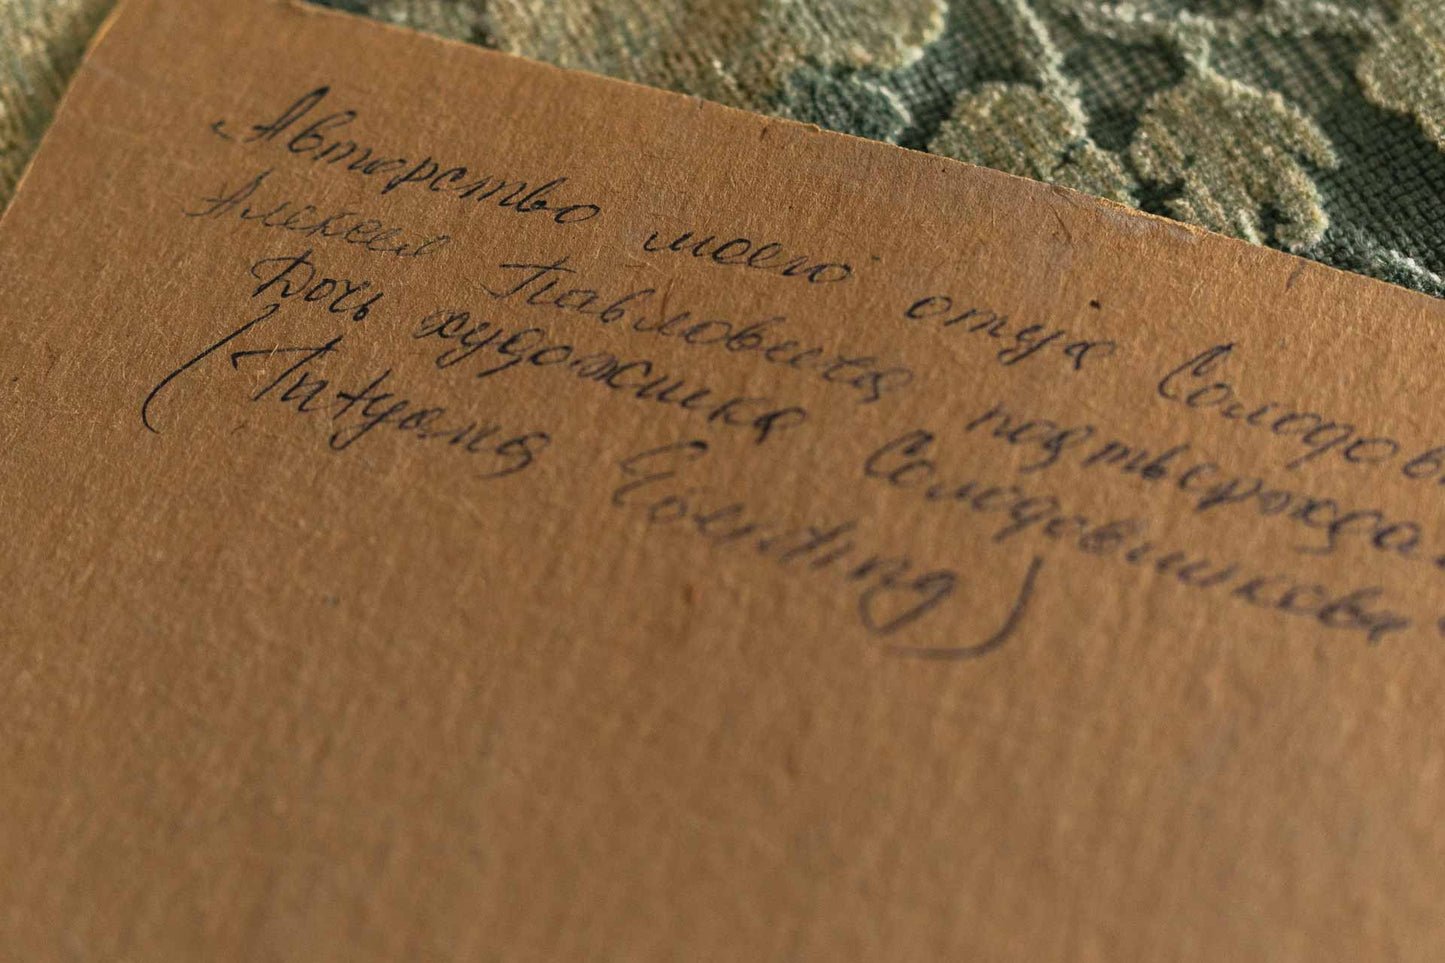 "Авторство моего отца Солодов
Алексея Павловича подтверждаю
Дочь художника Солодовникова
(Tatyana